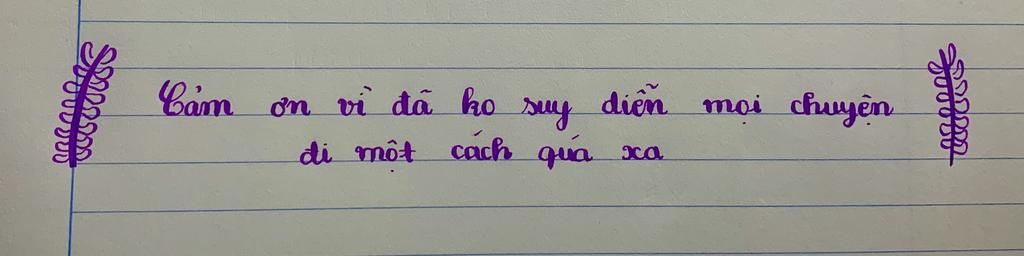 Cảm ơn vì đã ko suy diễn mọi chuyện
đi một cách quá xa